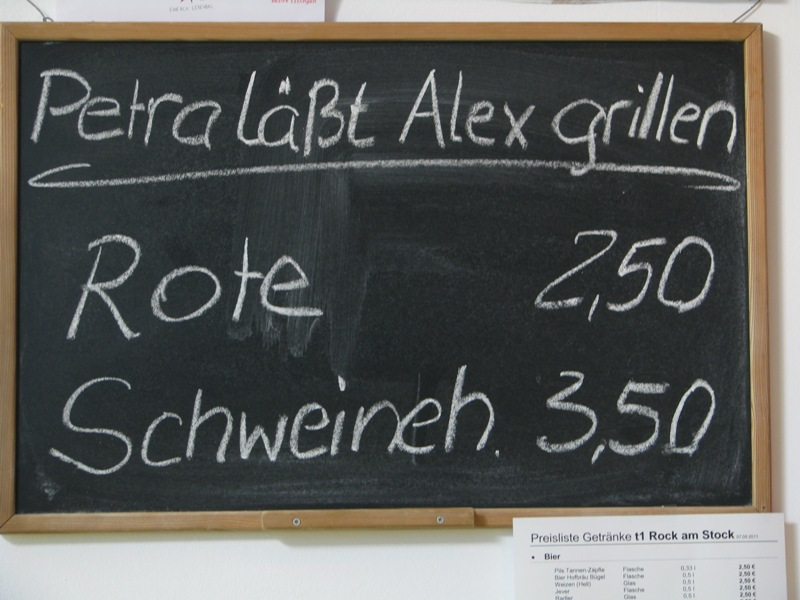 Petra läßt Alex grillen
Rote 2,50
Schweineh. 3,50
Preisliste Getränke t1 Rock am Stock 07.05.2011
• Bier
Pils Tannen-Zäpfle Flasche 0,33 l 2,50 €
Bier Hofbräu Bügel Flasche 0,5 l 2,50 €
Weizen (Hell) Glas 0,5 l 2,50 €
Jever Flasche 0,5 l 2,50 €
Radler Glas 0,5 l 2,50 €